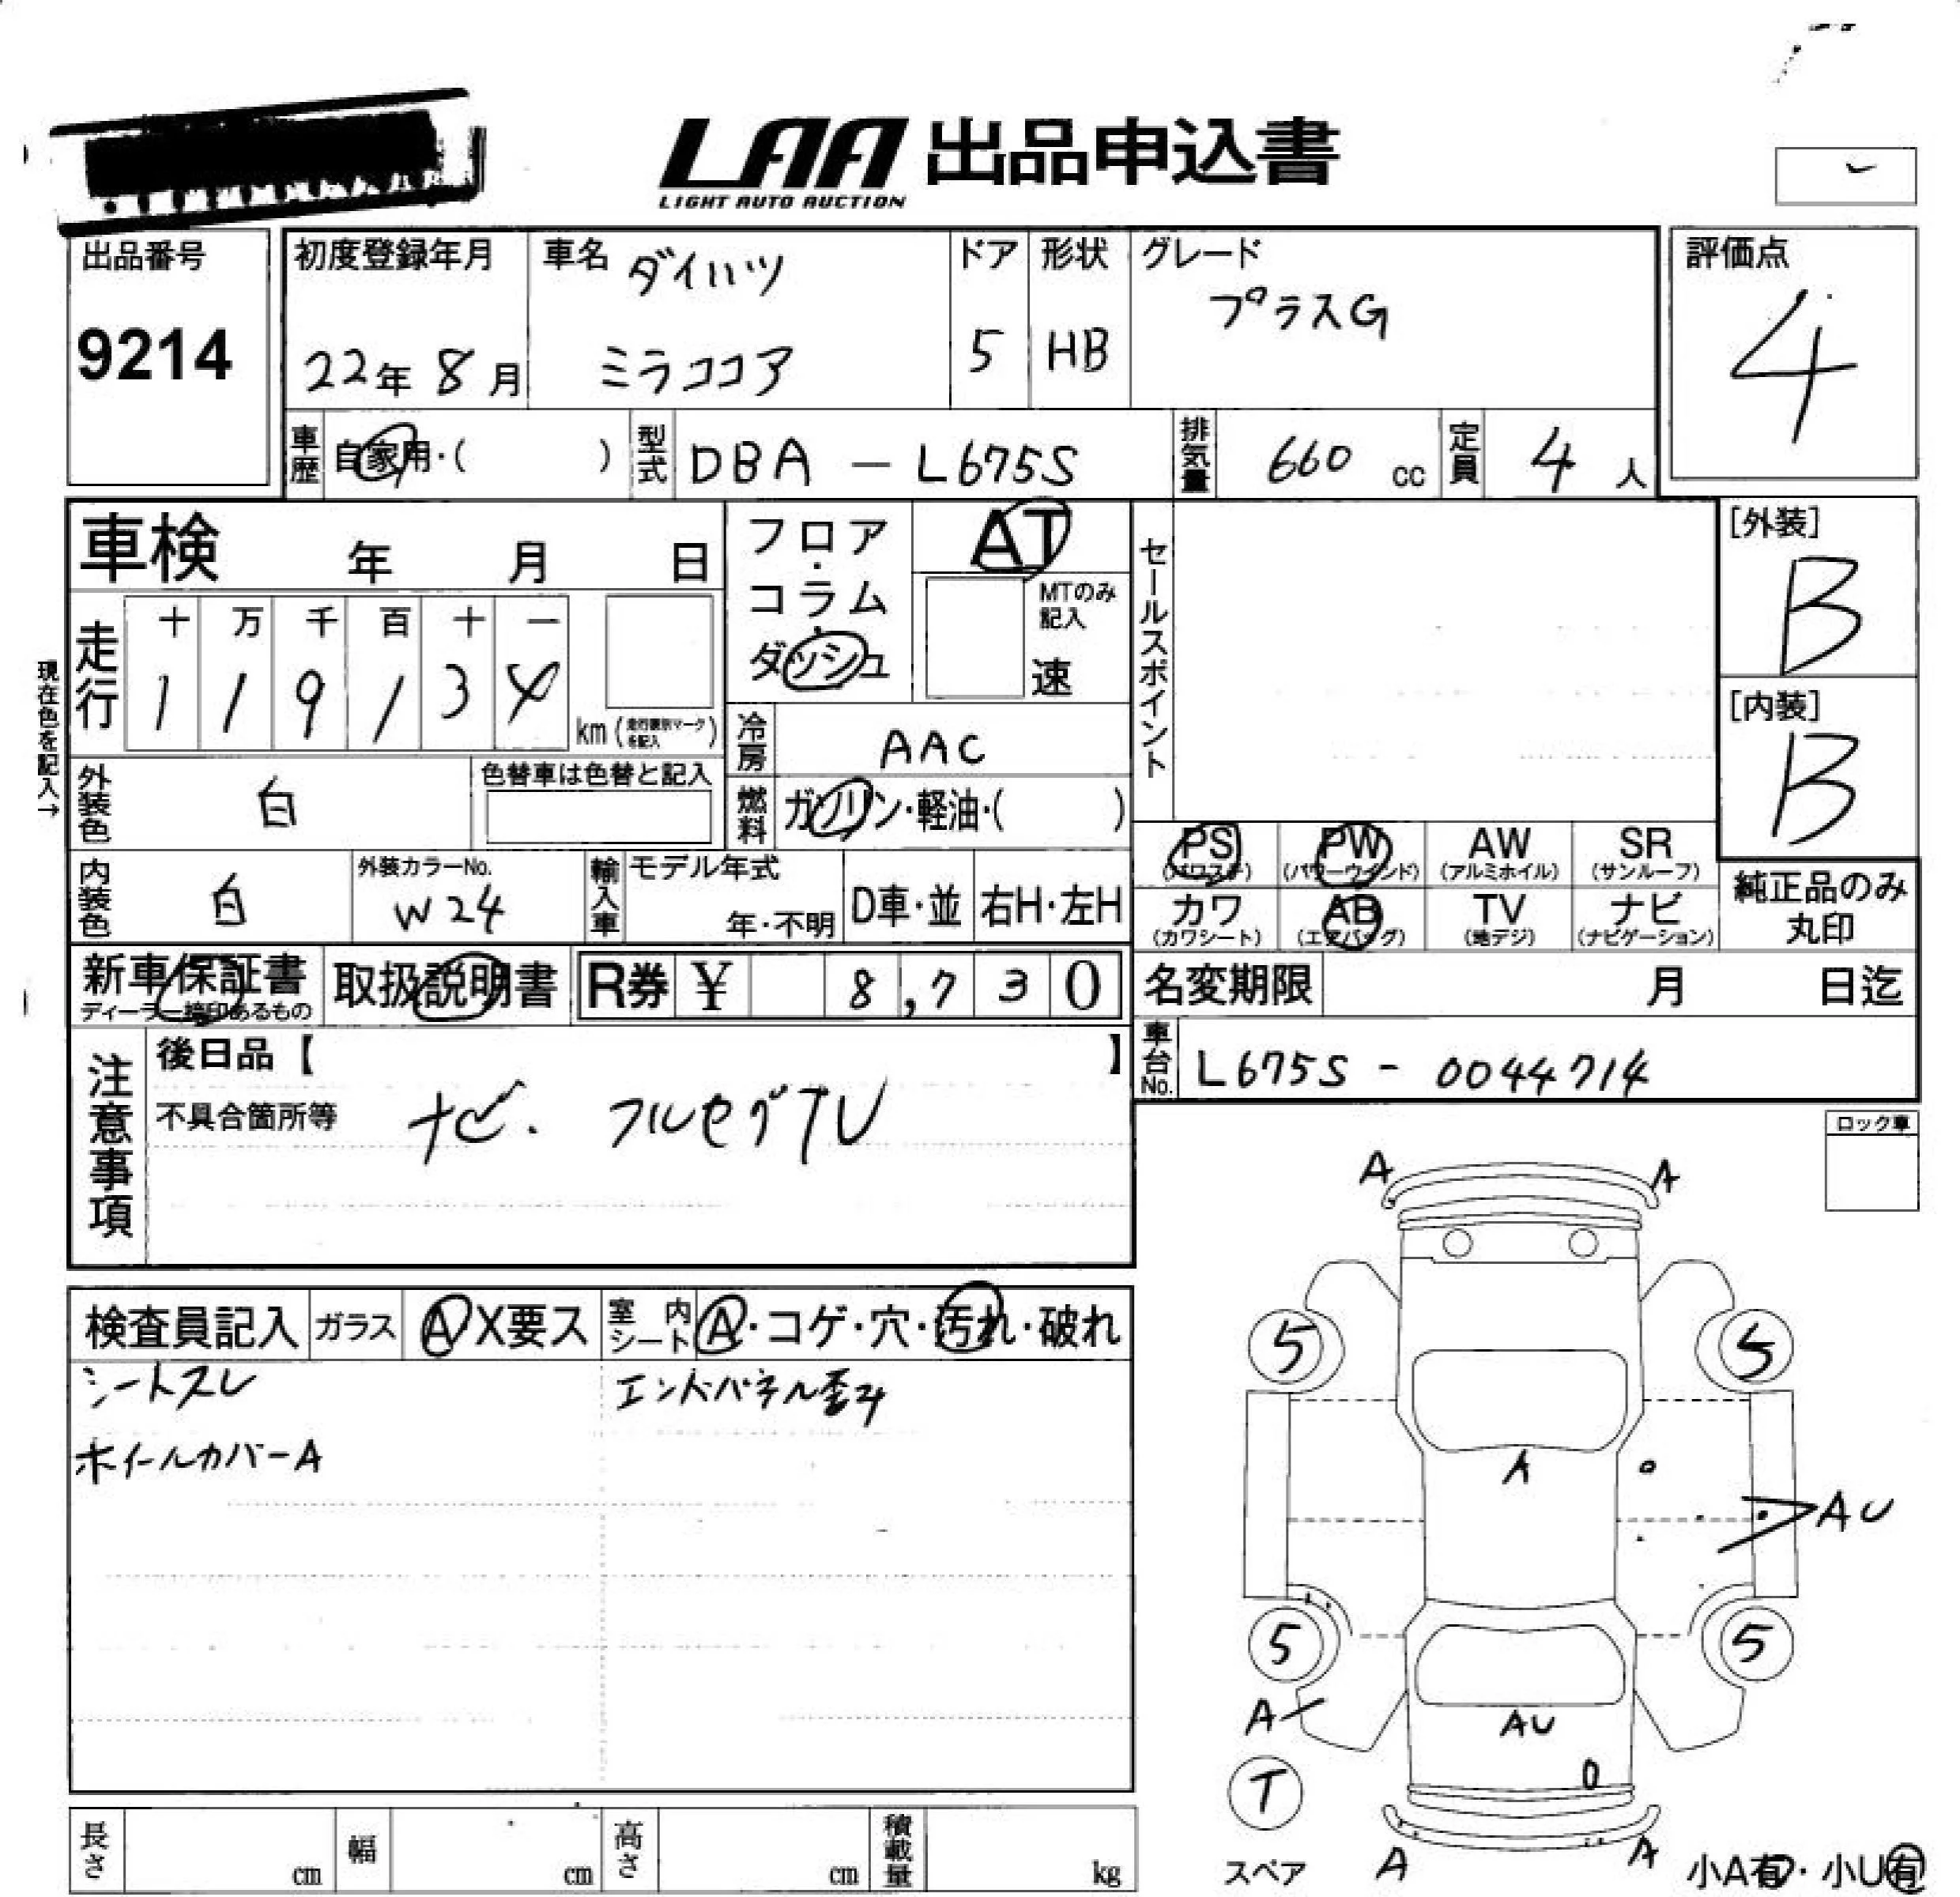 LAA 出品申込書
LIGHT AUTO AUCTION
出品番号
9214
初度登録年月
22年 8月
車名 ダイハツ
ミラココア
ドア
5
形状
HB
グレード
プラスG
評価点
4
車歴 自家用・( )
型式 DBA - L675S
排気量 660 cc
定員 4 人
車検 年 月 日
フロア・
コラム・
ダッシュ
AT
MTのみ
記入
速
セールスポイント
[外装]
B
[内装]
B
現在色を記入→
走行
十 万 千 百 十 一
1 1 9 1 3 4
km (走行識別マークを記入)
冷房 AAC
燃料 ガソリン・軽油・( )
外装色 白
色替車は色替と記入
内装色 白
外装カラーNo.
W24
輸入車 モデル年式
年・不明
D車・並
右H・左H
PS (パワステ)
PW (パワーウインド)
AW (アルミホイル)
SR (サンルーフ)
カワ (カワシート)
AB (エアバッグ)
TV (地デジ)
ナビ (ナビゲーション)
純正品のみ
丸印
新車保証書
ディーラー捺印あるもの
取扱説明書
R券 ¥ 8,730
名変期限 月 日迄
車台No. L675S - 0044714
注意事項
後日品【 】
不具合箇所等 ナビ. フルセグTV
ロック車
検査員記入
ガラス A X要ス
室内シート A・コゲ・穴・汚れ・破れ
シートスレ
エンドパネル歪み
ホイールカバーA
A A
5 5
A
AU
5 5
A
AU
T
スペア
A A
小A有・小U有
長さ cm
幅 cm
高さ cm
積載量 kg